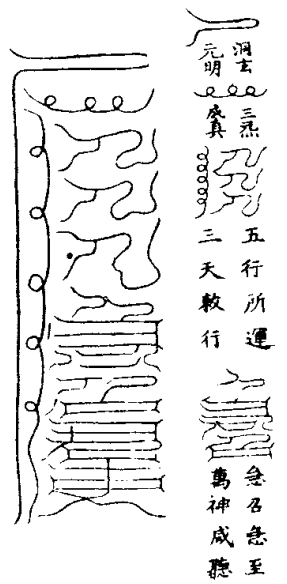 洞玄
元明
三炁
成真
五行所運
三天敕行
急召急至
萬神咸聽